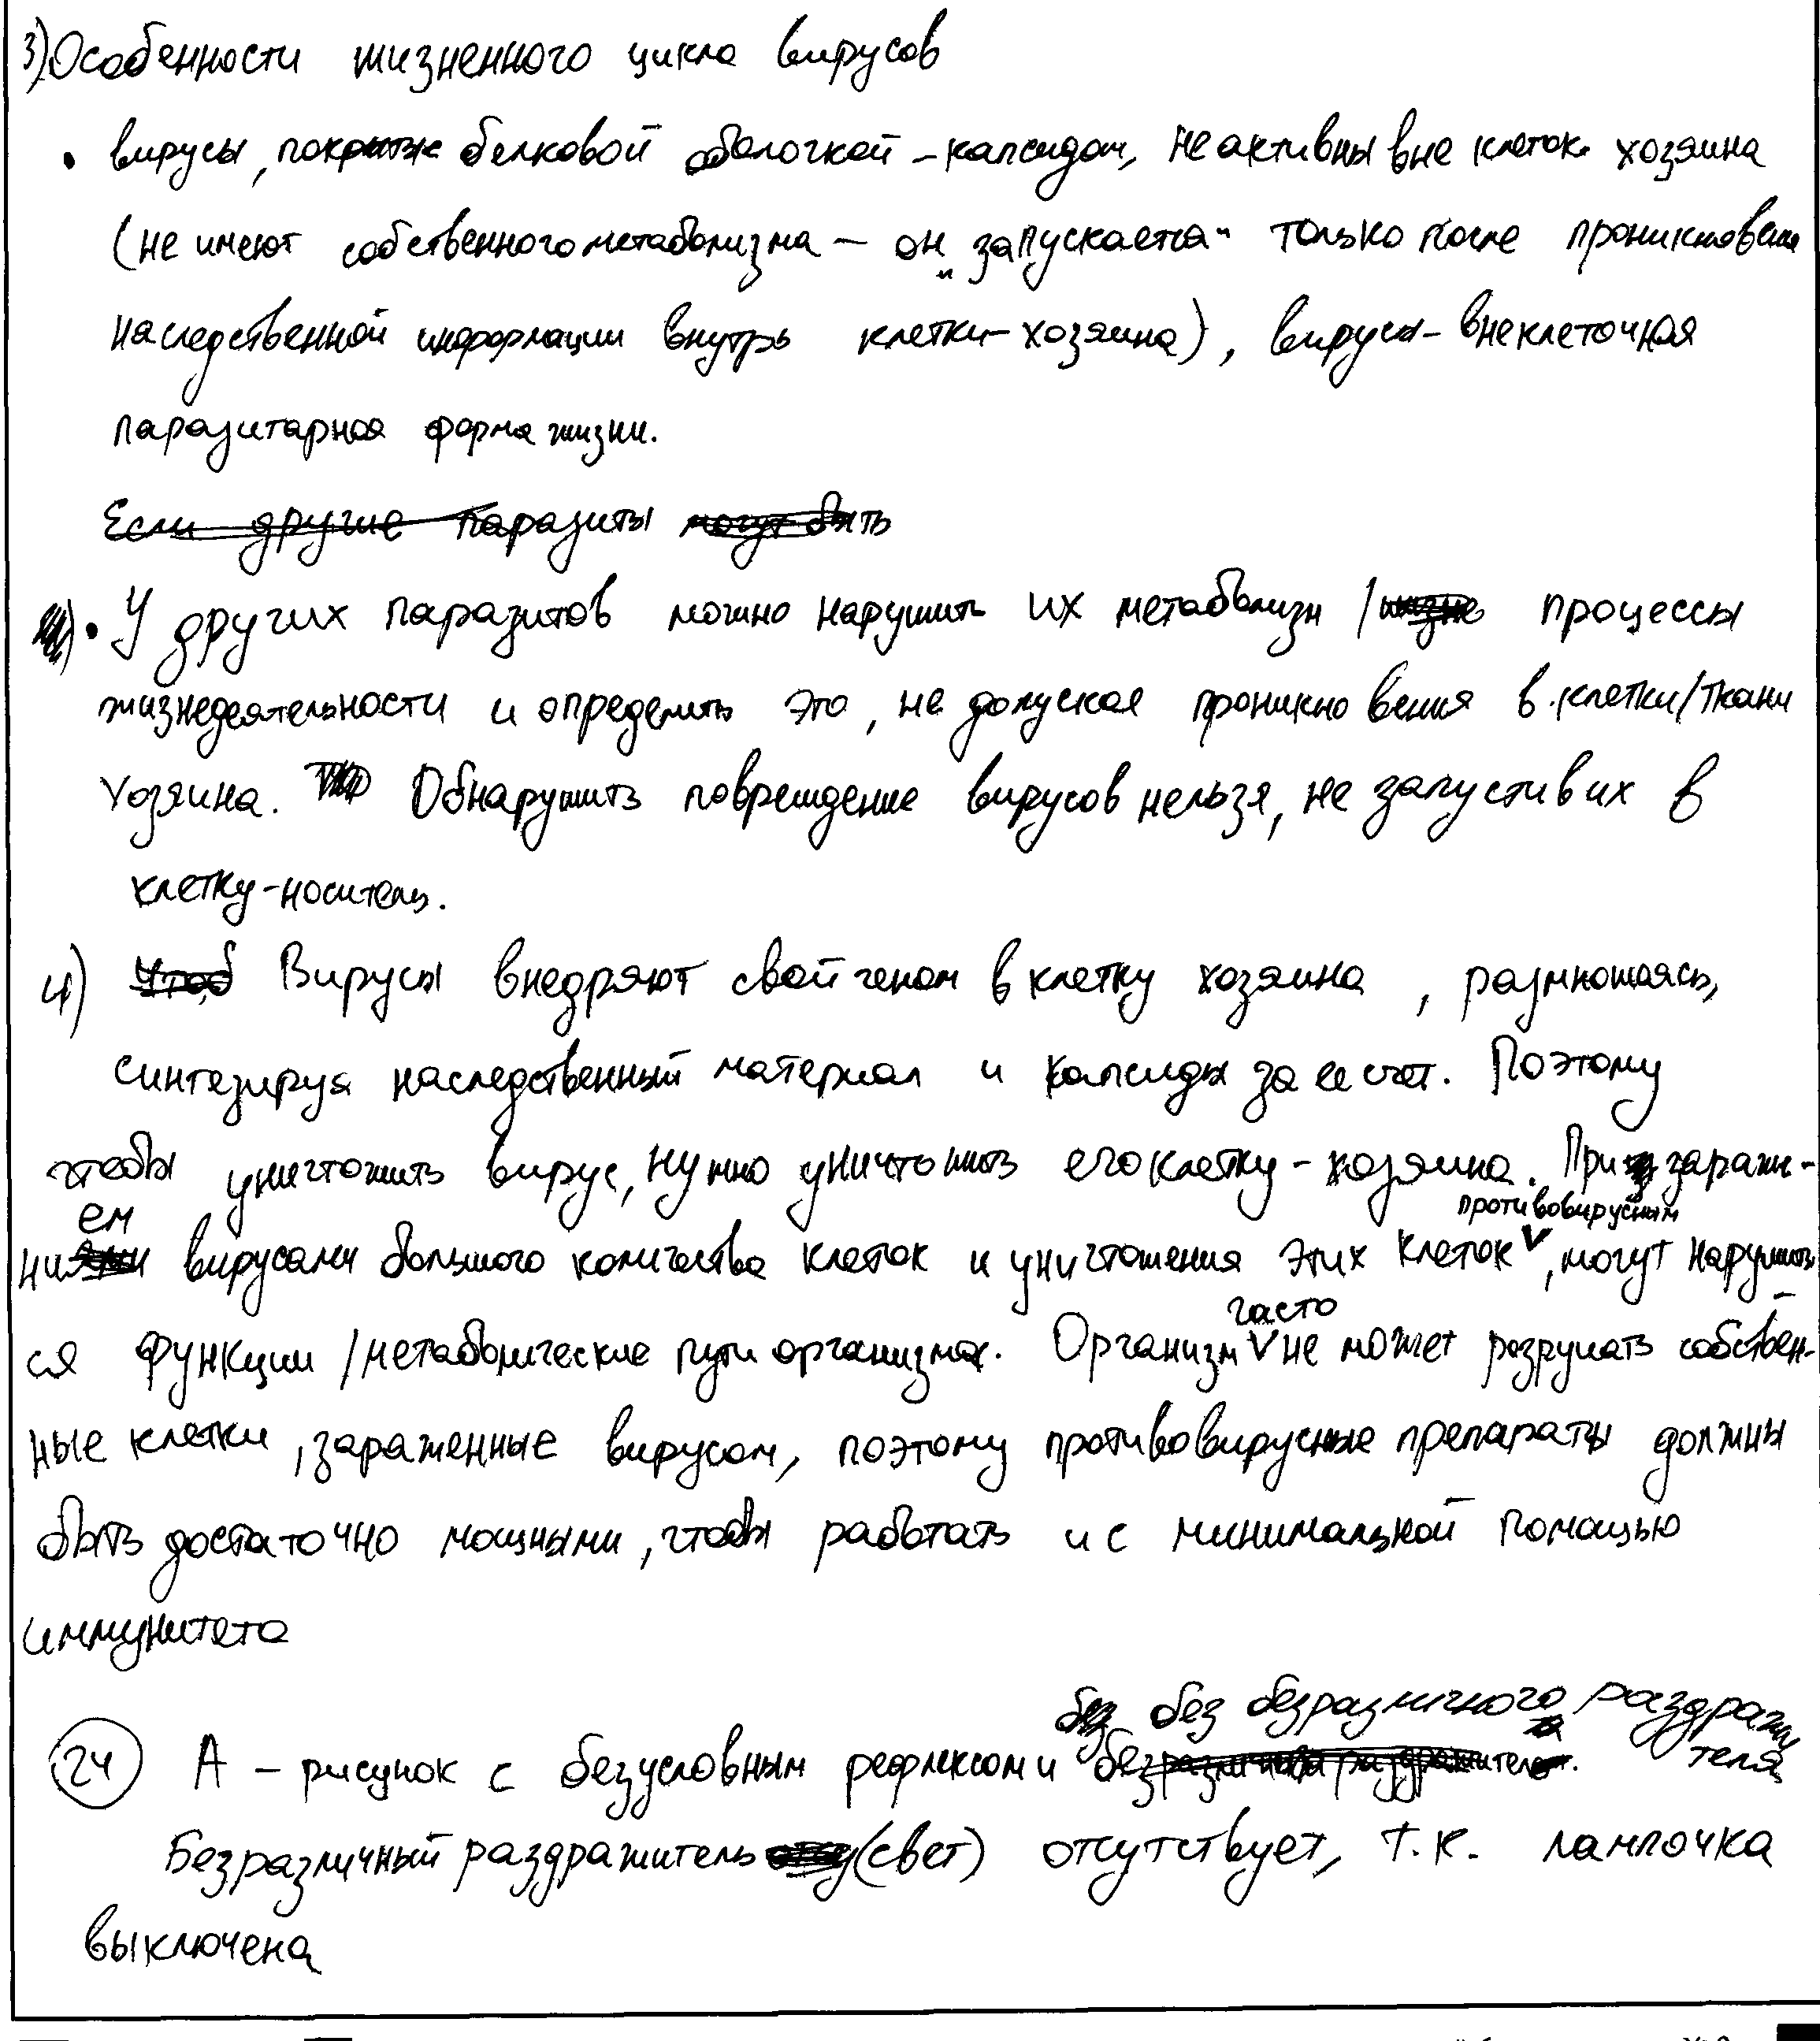 3) Особенности жизненного цикла вирусов
• вирусы, покрытые белковой оболочкой – капсидом, неактивны вне клеток хозяина
(не имеют собственного метаболизма – он „запускается“ только после проникновения
наследственной информации внутрь клетки-хозяина), вирусы – внеклеточная
паразитарная форма жизни.
Если другие паразиты могут быть
• У других паразитов можно нарушить их метаболизм / процессы
жизнедеятельности и определить это, не допуская проникновения в клетки/ткани
хозяина. Обнаружить повреждение вирусов нельзя, не запустив их в
клетку-носитель.
4) Чтоб Вирусы внедряют свой геном в клетку хозяина, размножаясь,
синтезируя наследственный материал и капсиды за ее счет. Поэтому
чтобы уничтожить вирус, нужно уничтожить его клетку-хозяина. При зараже-
противовирусным
нием вирусами большого количества клеток и уничтожения этих клеток V, могут нарушить
часто
ся функции / метаболические пути организма. Организм V не может разрушать собствен-
ные клетки, зараженные вирусом, поэтому противовирусные препараты должны
быть достаточно мощными, чтобы работать и с минимальной помощью
иммунитета
без безразличного раздражи
24 А – рисунок с безусловным рефлексом и безразличным раздражителем. теля
Безразличный раздражитель (свет) отсутствует, т.к. лампочка
выключена